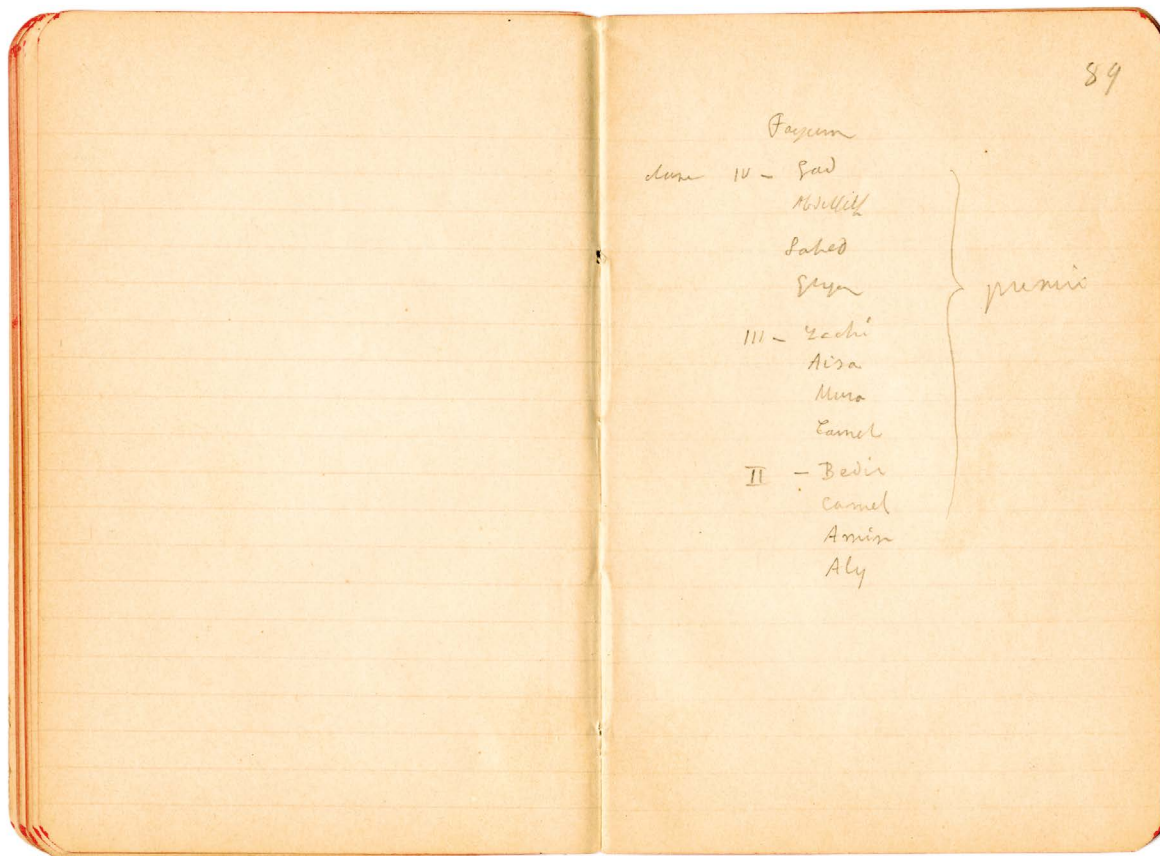 89
Fayum
classe IV - Gad
Sahed
III - Zachi
Aisa
Musa
Camel
II - Bedir
Camel
Amin
Aly
premi